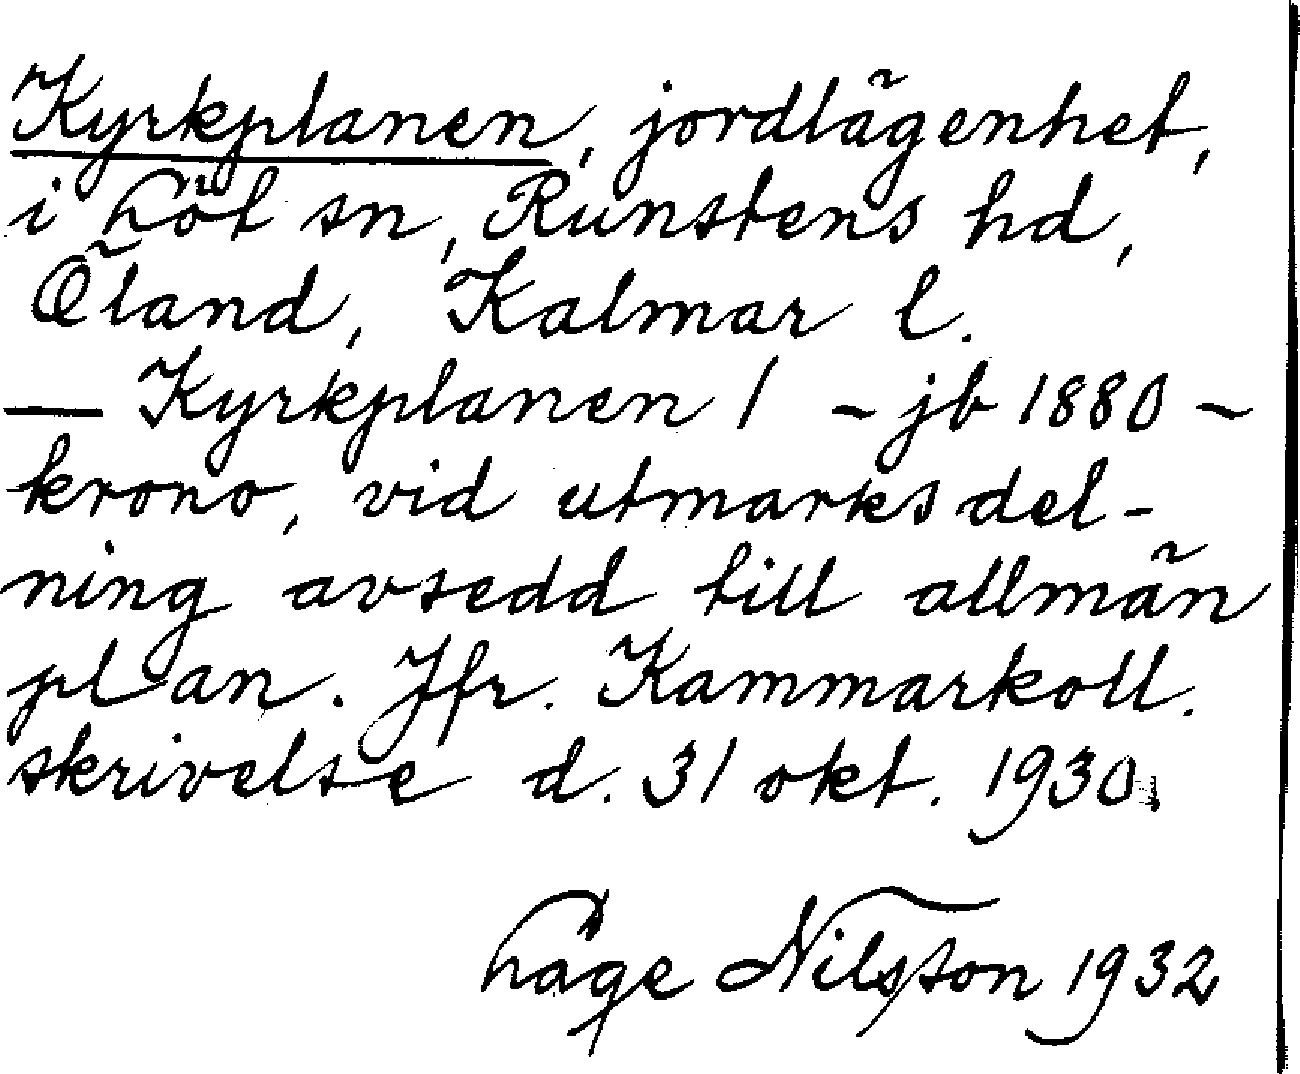 Kyrkplanen, jordlägenhet,
i Löt sn, Runstens hd,
Öland, Kalmar l.
— Kyrkplanen 1 - jb 1880 -
krono, vid utmarksdel-
ning avsedd till allmän
plan. Jfr. Kammarkoll.
skrivelse d. 31 okt. 1930.
Lage Nilsson 1932